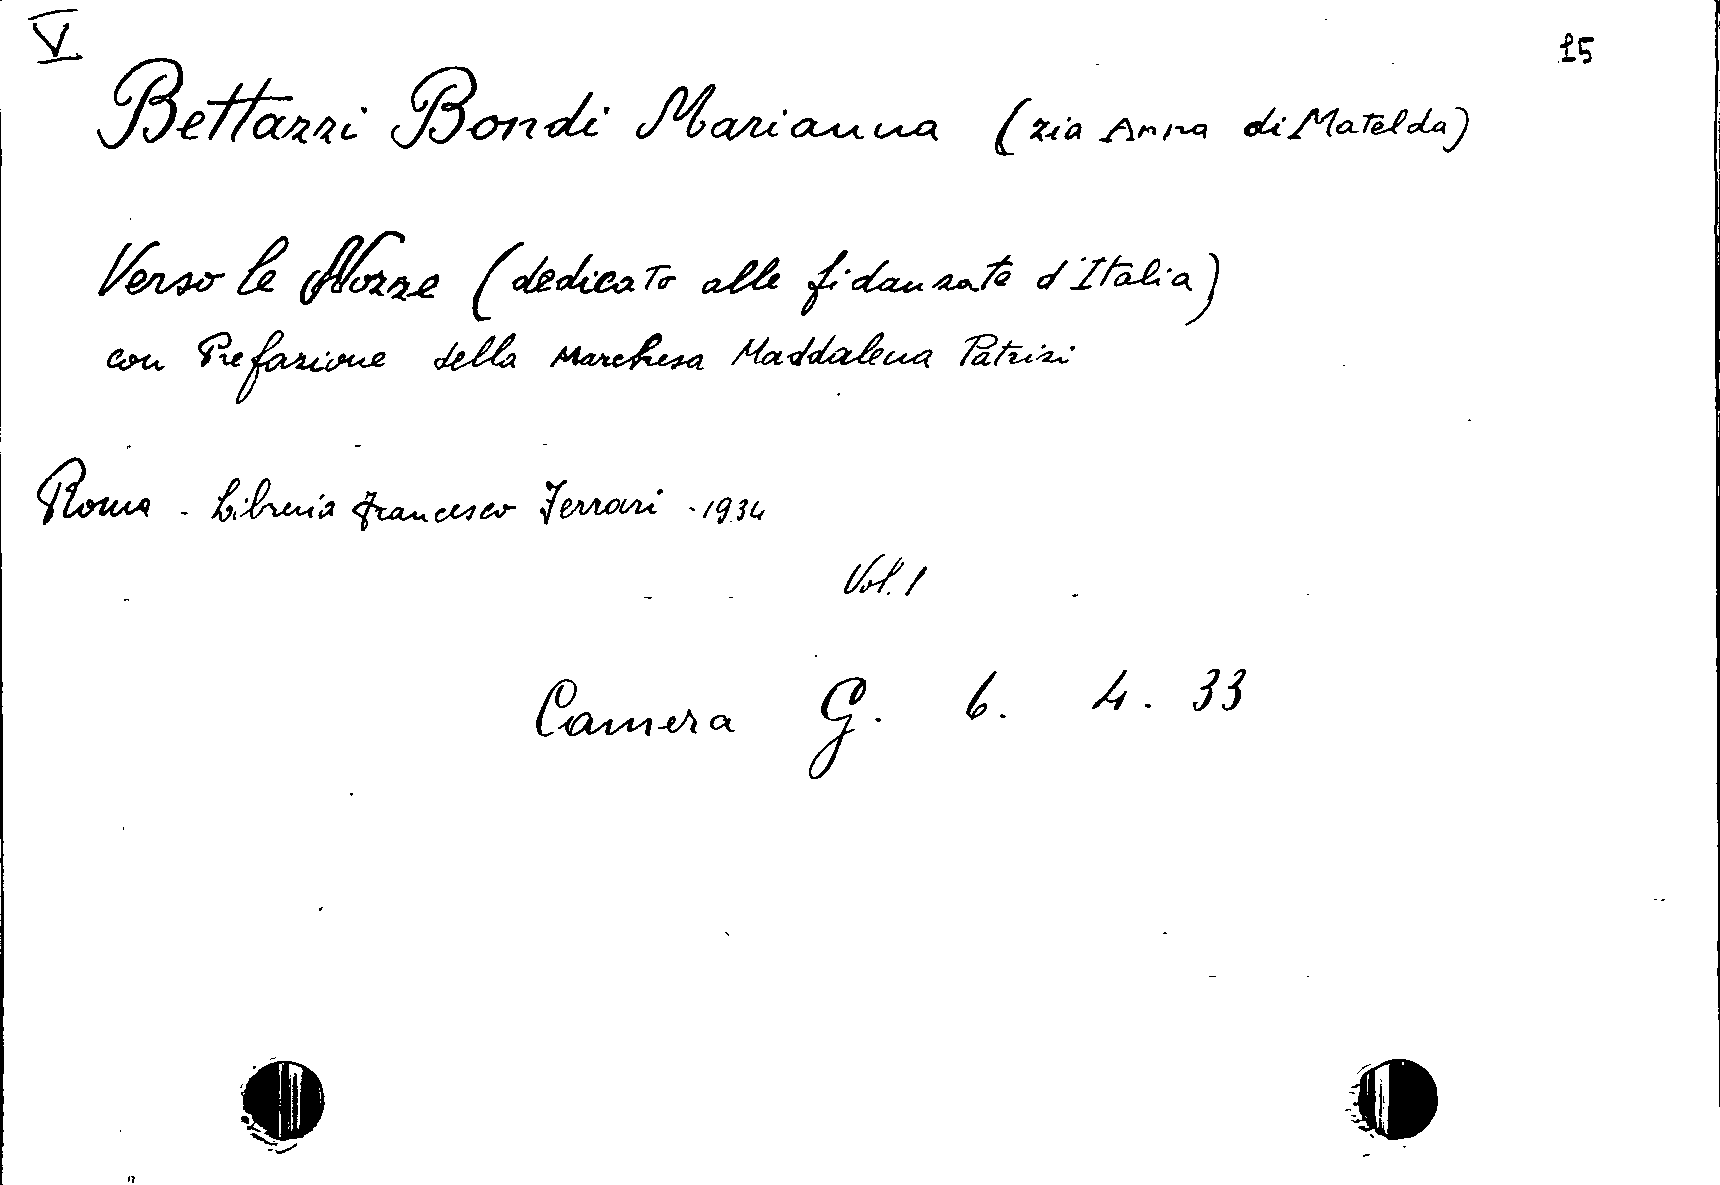 V
15
Bettazzi Bondi Marianna (zia Anna di Matelda)
Verso le Nozze (dedicato alle fidanzate d'Italia)
con Prefazione della Marchesa Maddalena Patrizi
Roma - Libreria Francesco Ferrari - 1934
Vol. 1
Camera G. 6. 4. 33